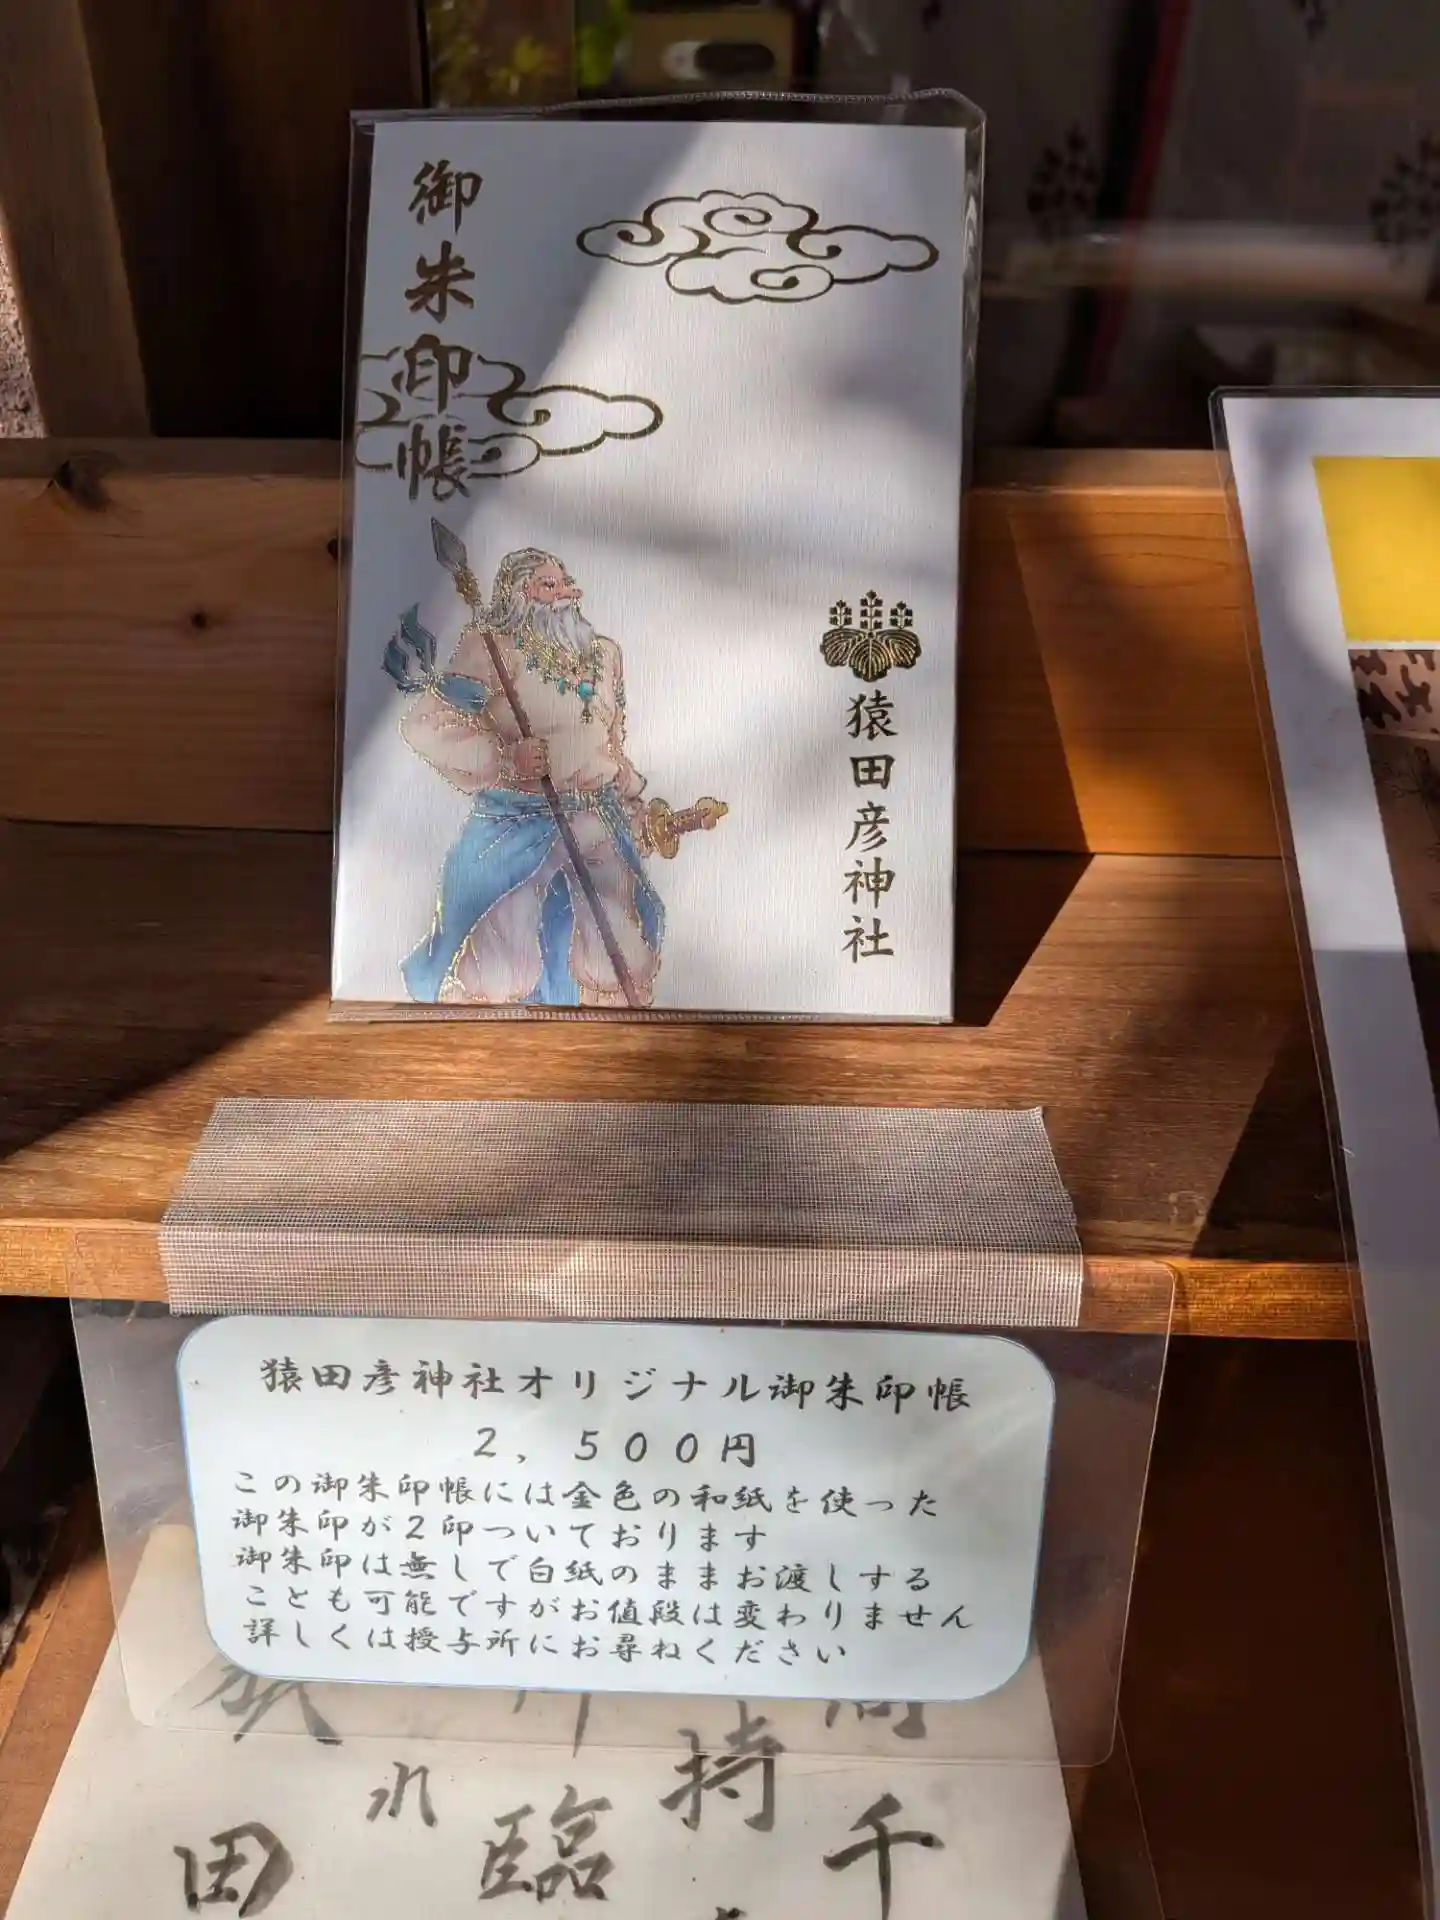 御朱印帳
猿田彦神社
猿田彦神社オリジナル御朱印帳
2,500円
この御朱印帳には金色の和紙を使った
御朱印が2印ついております
御朱印は無しで白紙のままお渡しする
ことも可能ですがお値段は変わりません
詳しくは授与所にお尋ねください
千
持
臨
水
田